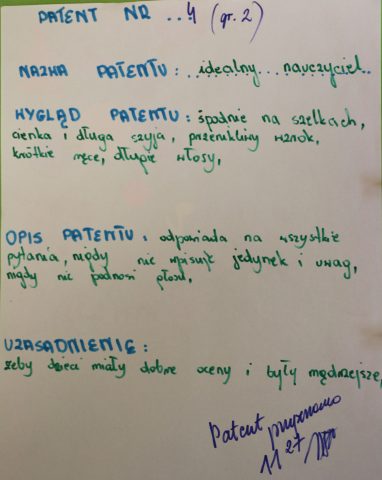 PATENT NR ..4 (gr. 2)
NAZWA PATENTU: ..idealny... nauczyciel..
WYGLĄD PATENTU: spodnie na szelkach,
cienka i długa szyja, przenikliwy wzrok,
krótkie ręce, długie włosy,
OPIS PATENTU: odpowiada na wszystkie
pytania, nigdy nie wpisuje jedynek i uwag,
nigdy nie podnosi głosu,
UZASADNIENIE:
żeby dzieci miały dobre oceny i były mądrzejsze,
Patent przyznano
11 27